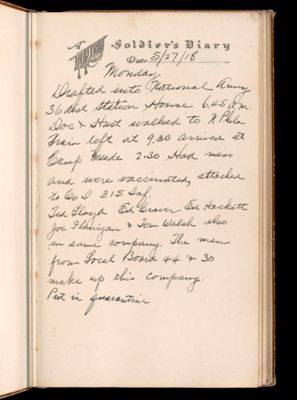 A Soldier's Diary
Date 5/27/18
Monday
Drafted into National Army
36 dist Station House 6.45 a.m.
Doc & Hust walked to N. Phila
Train left at 9.30 arrived at
Camp Meade 2-30 Had mess
and were vaccinated, attached
to Co I 315 Inf.
Ted Lloyd Ed Craver Ed Hackett
Joe Flanigan & Tom Walsh also
in same company. The men
from Local Board 44 & 30
make up this company.
Put in quarantine